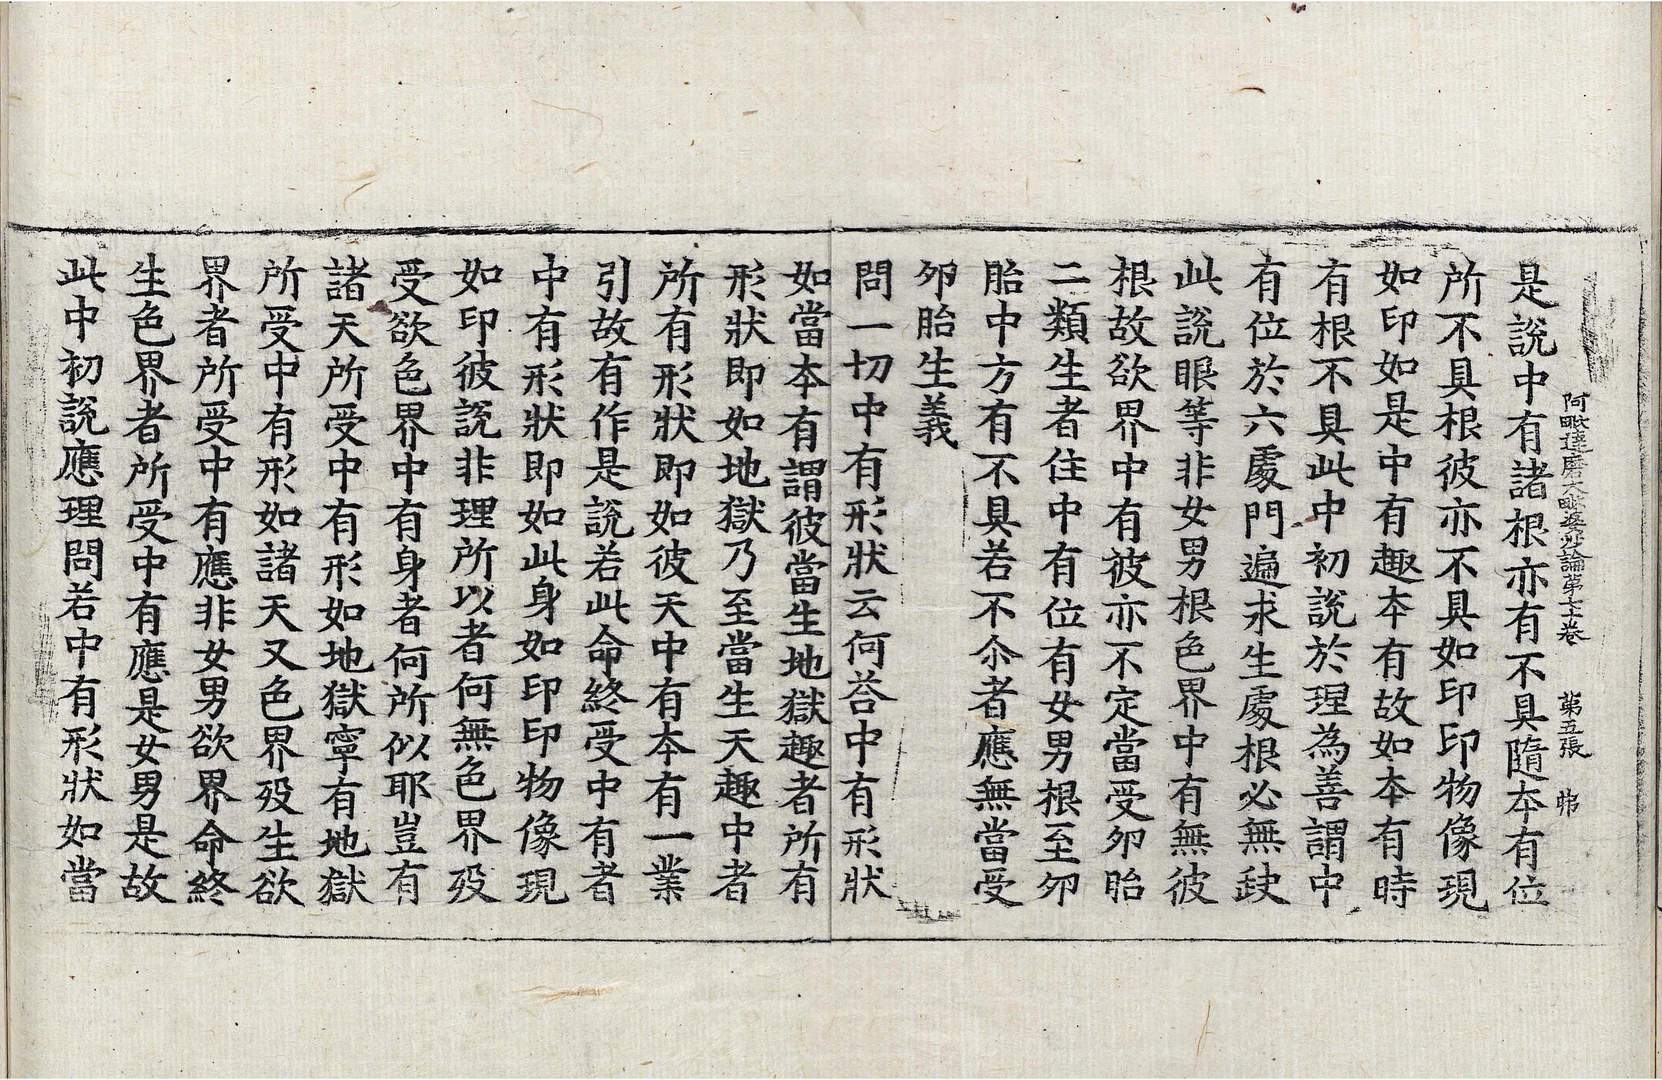 阿毗達磨大毗婆沙論第七十卷 第五張 㡀
是說中有諸根亦有不具隨本有位
所不具根彼亦不具如印印物像現
如印如是中有趣本有故如本有時
有根不具此中初說於理為善謂中
有位於六處門遍求生處根必無缺
此說眼等非女男根色界中有無彼
根故欲界中有彼亦不定當受夘胎
二類生者住中有位有女男根至夘
胎中方有不具若不尒者應無當受
夘胎生義
問一切中有形狀云何荅中有形狀
如當本有謂彼當生地獄趣者所有
形狀即如地獄乃至當生天趣中者
所有形狀即如彼天中有本有一業
引故有作是說若此命終受中有者
中有形狀即如此身如印印物像現
如印彼說非理所以者何無色界歿
受欲色界中有身者何所似耶豈有
諸天所受中有形如地獄寧有地獄
所受中有形如諸天又色界歿生欲
界者所受中有應非女男欲界命終
生色界者所受中有應是女男是故
此中初說應理問若中有形狀如當